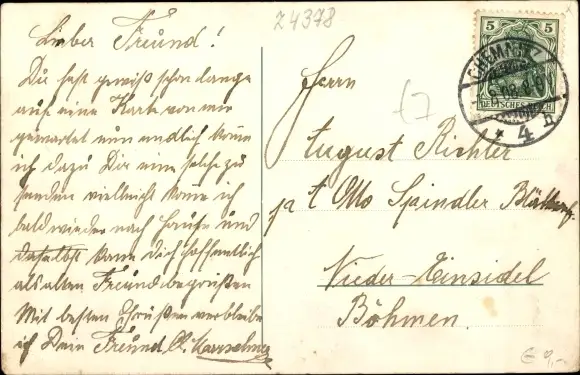 Z4378
Lieber Freund!
Du hast gewiß schon lange
auf eine Karte von mir
gewartet nun endlich komme
ich dazu Dir eine solche zu
senden vielleicht komme ich
bald wieder nach Hause und
daselbst kann Dich hoffentlich
als alten Freund begrüßen
Mit besten Grüßen verbleibe
ich Dein Freund
5 5
DEUTSCHES REICH
CHEMNITZ
4
Herrn
August Richter
p. A. Otto Spindler
Nieder-Einsidel
Böhmen.
€ 9,-